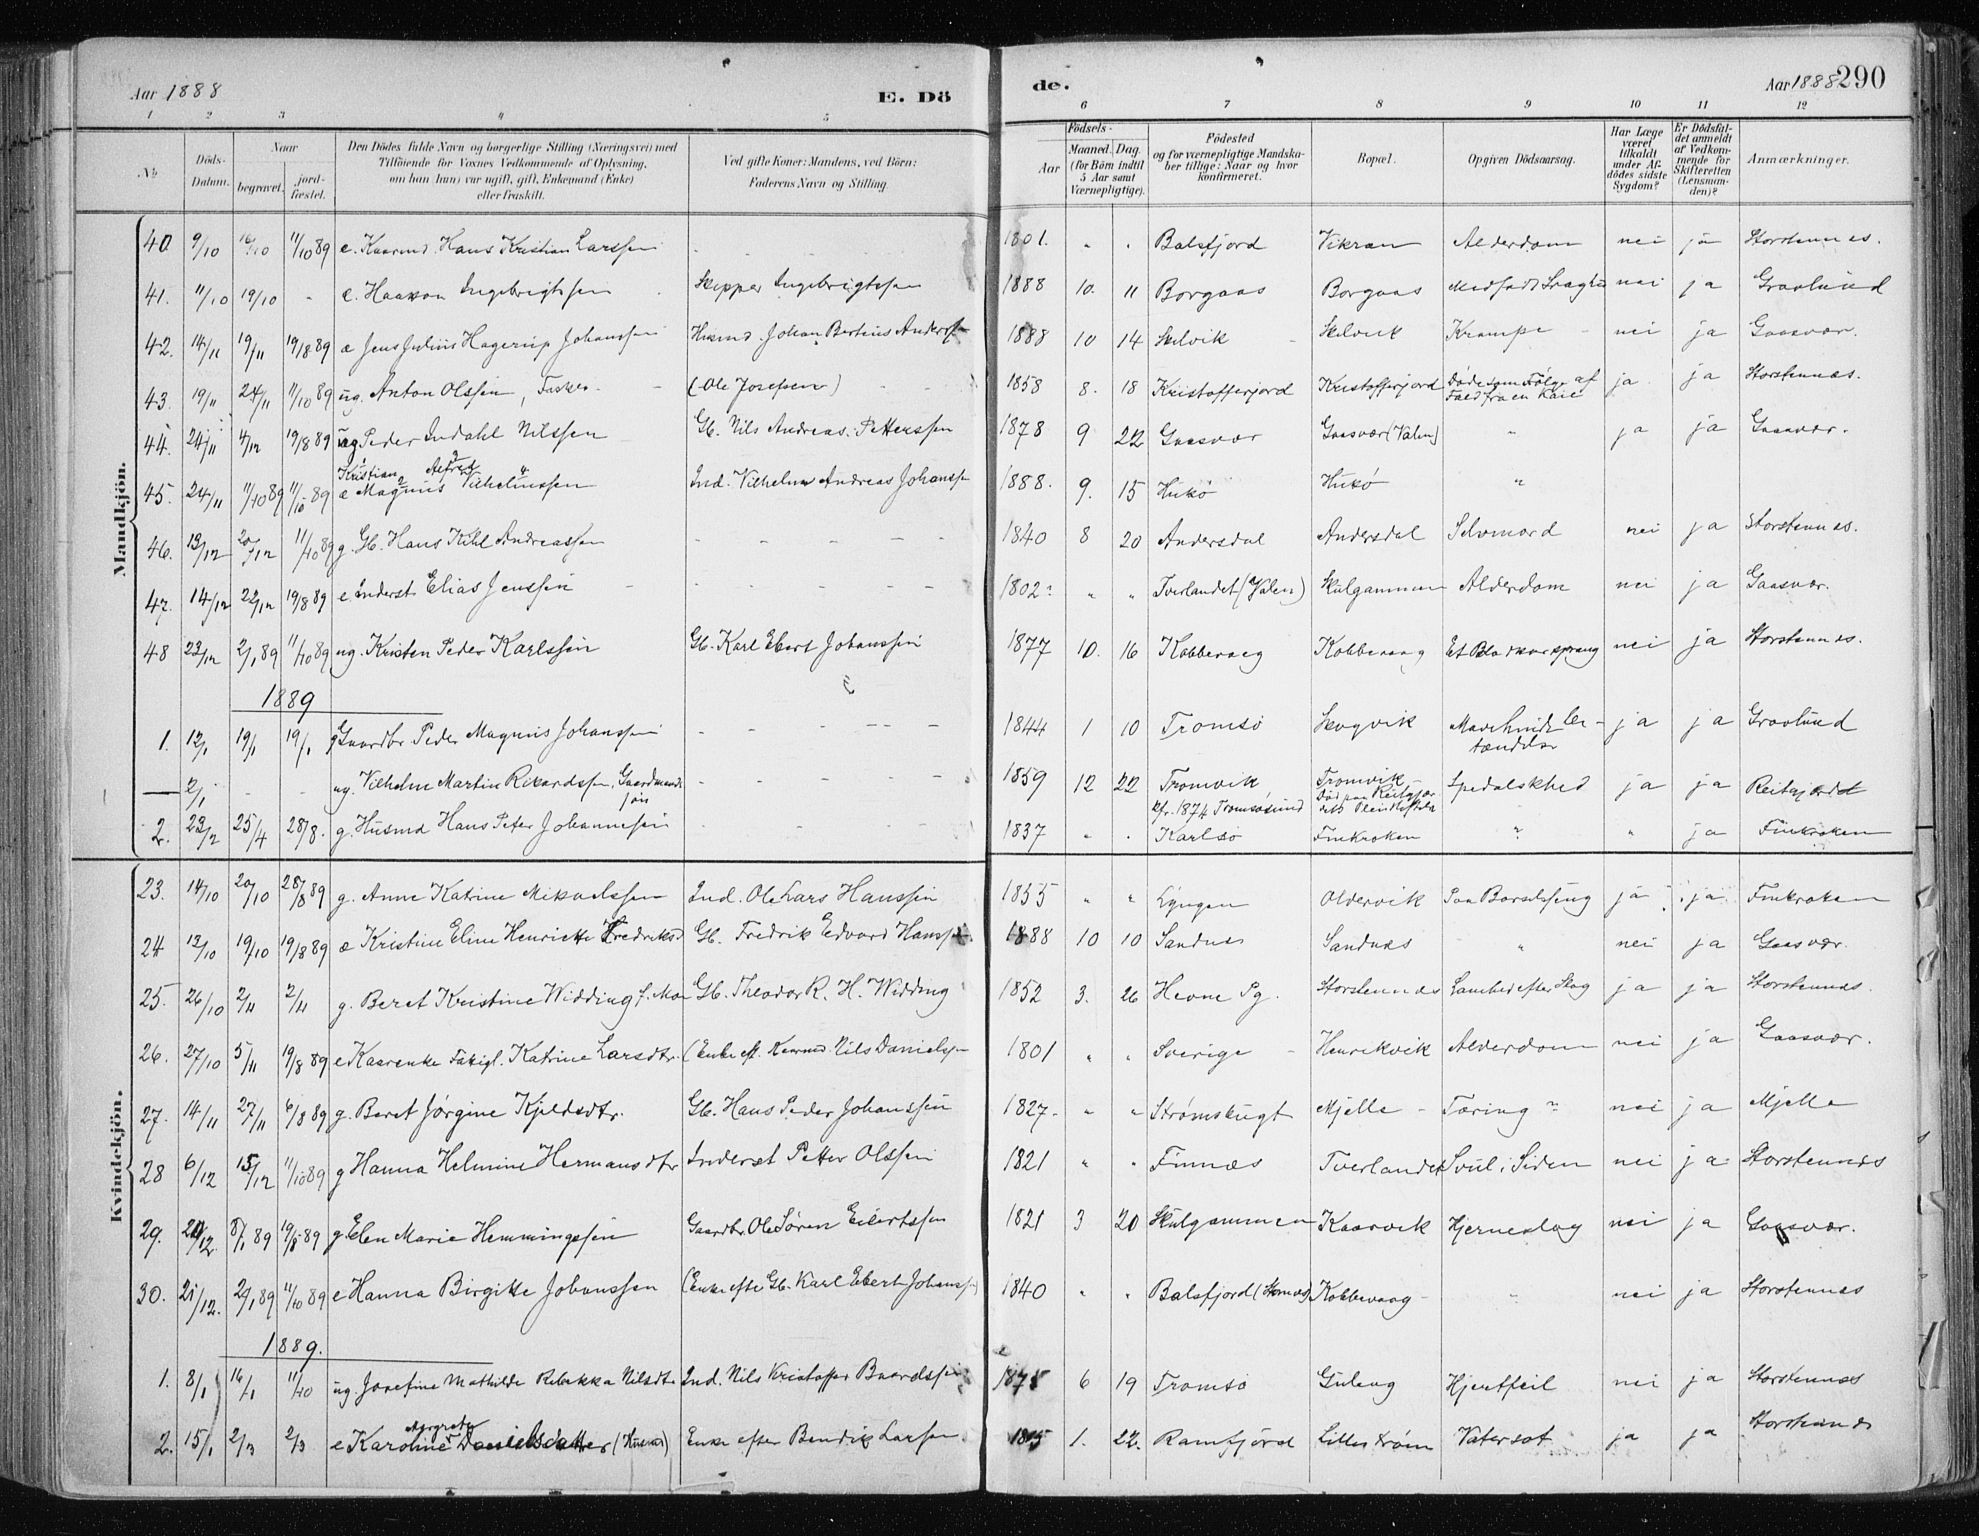 Aar 1888 E. Dö de. Aar 1888 290
1 2 3 4 5 6 7 8 9 10 11 12
№ Döds-Datum. Naar begravet. jordfæstet. Den Dödes fulde Navn og borgerlige Stilling (Næringsvei) med Tilföiende for Voxnes Vedkommende af Oplysning, om han (hun) var ugift, gift, Enkemand (Enke) eller fraskilt. Ved gifte Koner: Mandens, ved Börn: Faderens Navn og Stilling. Aar Födsels- Maaned. Dag. (for Börn indtil 5 Aar samt Værnepligtige). Födested og for værnepligtige Mandskaber tillige: Naar og hvor konfirmeret. Bopæl. Opgiven Dödsaarsag. Har Læge været tilkaldt under Afdödes sidste Sygdom? Er Dödsfaldet anmeldt af Vedkommende for Skifteretten (Lensmanden)? Anmærkninger.
Mandkjön.
40. 9/10 16/10 11/10 89 e. Kaarmd. Hans Kristian Larssen 1801. " " Balsfjord Vikran Alderdom nei ja Storstennes.
41. 11/10 19/10 - e. Haakon Ingebrigtssen Skipper Ingebrigtssen 1888 10. 11 Borgaas Borgaas Medfødt nei ja Graalund
42. 14/11 19/11 19/8 89 æ Jens Julius Hagerup Johanssen Husmd. Johan Bertius Anderssen 1888 10 14 Skelvik Skelvik Krampe nei ja Gaasvær.
43. 19/11 24/11 11/10 89 ug. Anton Olssen, Fisker (Ole Josefsen) 1858 8. 18 Kristofferjord Kristofferjord Døde som Følge af Fald fra en Kaie ja ja Storstennæs.
44. 24/11 4/12 19/8 89 ug Peder Indahl Nilssen Gb. Nils Andreas Petterssen 1878 9 22 Gaasvær Gaasvær (Valen) " ja ja Gaasvær.
45. 24/11 11/10 89 11/10 89 e Kristian Magnus Alfred Vilhelmssen Ind. Vilhelm Andreas Johanssen 1888. 9. 15 Hukø Hukø "
46. 13/12 20/12 11/10 89 g. Gb. Hans Kihl Andreassen 1840 8 20 Andersdal Andersdal Selvmord nei ja Storstennes.
47. 14/12 22/12 19/8 89 e Inderst Elias Jenssen 1802 " " Tverlandet (Valen) Skulgammen Alderdom nei ja Gaasvær.
48 23/12 2/1 89 11/10 89 ug. Kristen Peder Karlssen Gb. Karl Ebert Johanssen 1877 10. 16 Kobbevaag Kobbevaag Et Blodkar sprang nei ja Storstennes.
1889
1. 12/1 19/1 19/1 g Gaardbr Peder Magnus Johanssen 1844 1 10 Tromsö Skogvik betændelse ja ja Graalund
— 2/1 - - ug. Vilhelm Martin Rikardssen, Gaardmands søn 1859 12 22 Tromvik kfr. 1874 Tromsøsund Tromvik Død paa Reitgjærdets Pleiestiftelse Spedalskhed ja ja Reitgjærdet
2. 23/2 25/4 28/8. g. Husmd Hans Peter Johannessen 1837 " . Karlsö Finkroken " " ja Finkroken
Kvindekjön.
23. 14/10 20/10 28/8 89 g. Anne Katrine Mikaelssen Ind. Ole Lars Hanssen 1855 " " Lyngen Oldervik Paa Barselseng ja ja Finkroken
24 13/10 19/10 19/8 89 æ Kristine Eline Henriette Fredriksd Gb. Fredrik Edvard Hanssen 1888 10 10 Sandnes Sandnes " nei ja Gaasvær.
25. 26/10 2/11 2/11 g. Beret Kristine Widding f. Moe Gb. Theodor R. H. Widding 1852 3. 26 Hevne Pg. Storstennes Lamhed efter Slag ja ja Storstennæs.
26. 27/10 5/11 19/8 89 e Kaarenke Fattigl. Katrine Larsdtr (Enke eft. Kaarmd. Nils Danielssen 1801 " " Sverige Henrikvik Alderdom nei ja Gaasvær.
27. 14/11 27/11 6/8 89 g. Beret Jørgine Kjeldsdtr. Gb. Hans Peder Johanssen 1827. " " Strømskugt Mjelle Tæring nei ja Mjelle
28 6/12 15/12 11/10 89 g Hanna Helmine Hermansdtr Inderst Petter Olssen 1821 " " Finnæs Tverlandet Svul i Siden nei ja Storstennæs
29. 20/12. 8/1 89 19/8 89 g. Elen Marie Hemmingssen Gaardbr Ole Søren Eilertssen 1821 3 20 Skulgammen Kaarvik Hjerneslag nei ja Gaasvær.
30. 21/12. 2/1 89 11/10 89 e Hanna Birgitte Johanssen (Enke efter Gb. Karl Ebert Johanssen) 1840 " " Balsfjord Kobbevaag " nei ja Storstennes
1889.
1. 8/1 16/1 11/10 ug Josefine Mathilde Rebekka Nilsdtr Ind. Nils Kristoffer Baardssen 1875 6 19 Tromsø Guleng Hjertfeil nei ja Storstennes
2. 15/1 2/3 2/3 e Karoline Margrete Danielsdatter Enke efter Bendix Larsen 1815 1. 22. Ramfjord Lillestrøm Vatersot ja ja Storstennes